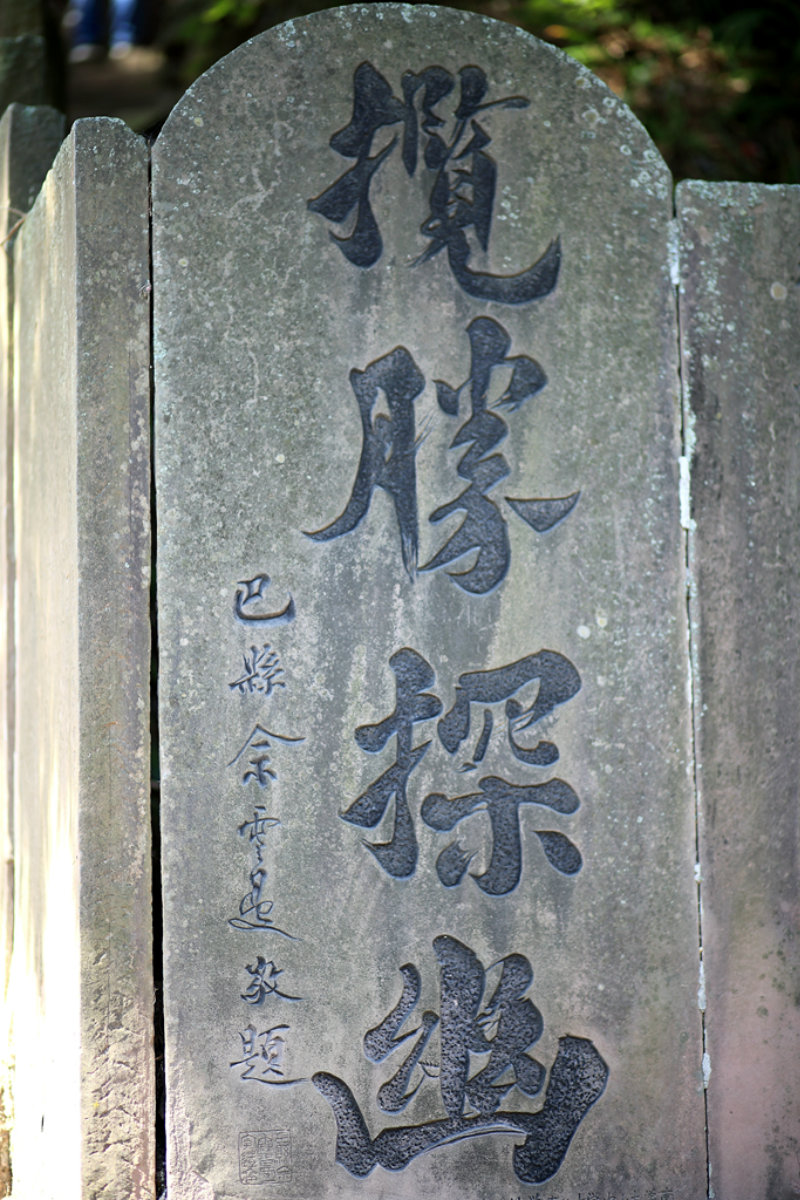 攬勝探幽
巴縣余雲是敬題